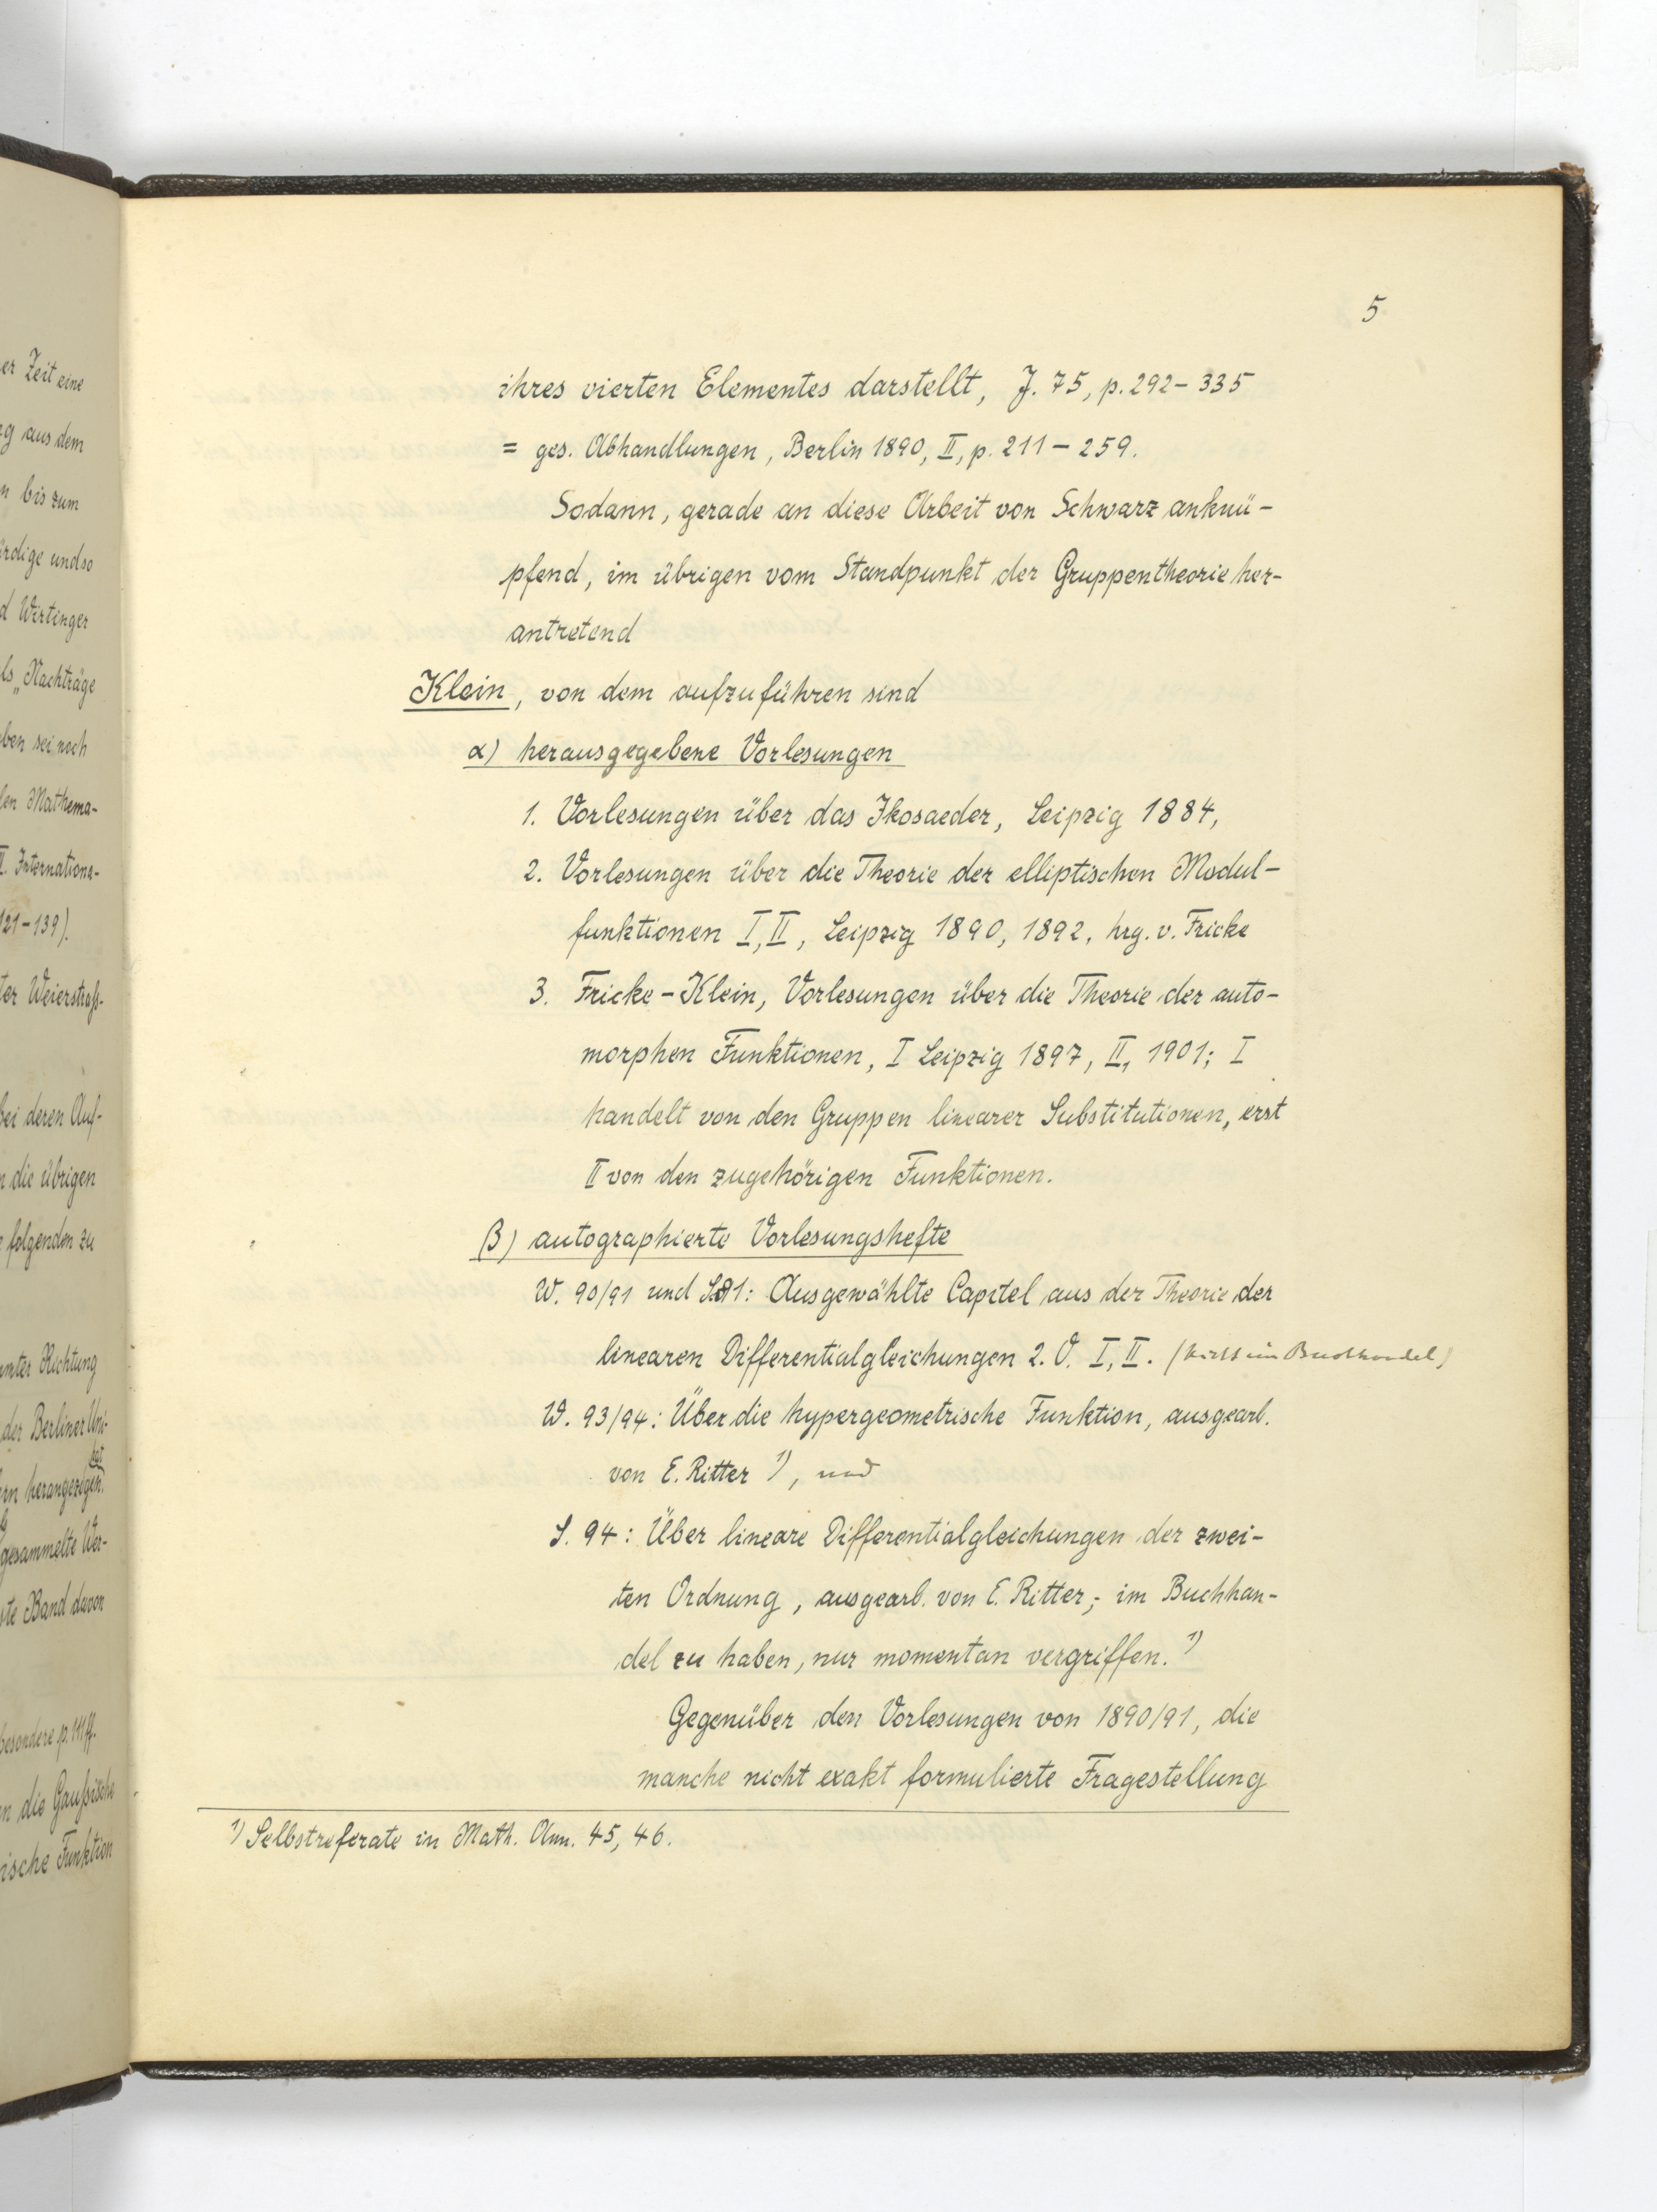 er Zeit eine
g aus dem
n bis zum
rdige und so
d Wirtinger
ls „Nachträge
ben sei noch
len Mathema-
II. Internationa-
121-139).
ter Weierstraß-
bei deren Auf-
n die übrigen
e folgenden zu
mter Richtung
der Berliner Uni-
rn herangezogen.
gesammelte Wer-
ste Band davon
besondere p. 111 ff.
n die Gaußische
ische Funktion
5
ihres vierten Elementes darstellt, J. 75, p. 292-335
= ges. Abhandlungen, Berlin 1890, II, p. 211-259.
Sodann, gerade an diese Arbeit von Schwarz anknü-
pfend, im übrigen vom Standpunkt der Gruppentheorie her-
antretend
Klein, von dem aufzuführen sind
α) herausgegebene Vorlesungen
1. Vorlesungen über das Ikosaeder, Leipzig 1884,
2. Vorlesungen über die Theorie der elliptischen Modul-
funktionen I, II, Leipzig 1890, 1892, hrg. v. Fricke
3. Fricke-Klein, Vorlesungen über die Theorie der auto-
morphen Funktionen, I Leipzig 1897, II, 1901; I
handelt von den Gruppen linearer Substitutionen, erst
II von den zugehörigen Funktionen.
β) autographierte Vorlesungshefte
W. 90/91 und S. 91: Ausgewählte Capitel aus der Theorie der
linearen Differentialgleichungen 2. O. I, II. (nicht im Buchhandel)
W. 93/94: Über die hypergeometrische Funktion, ausgearb.
von E. Ritter 1), und
S. 94: Über lineare Differentialgleichungen der zwei-
ten Ordnung, ausgearb. von E. Ritter; im Buchhan-
del zu haben, nur momentan vergriffen. 1)
Gegenüber den Vorlesungen von 1890/91, die
manche nicht exakt formulierte Fragestellung
1) Selbstreferate in Math. Ann. 45, 46.